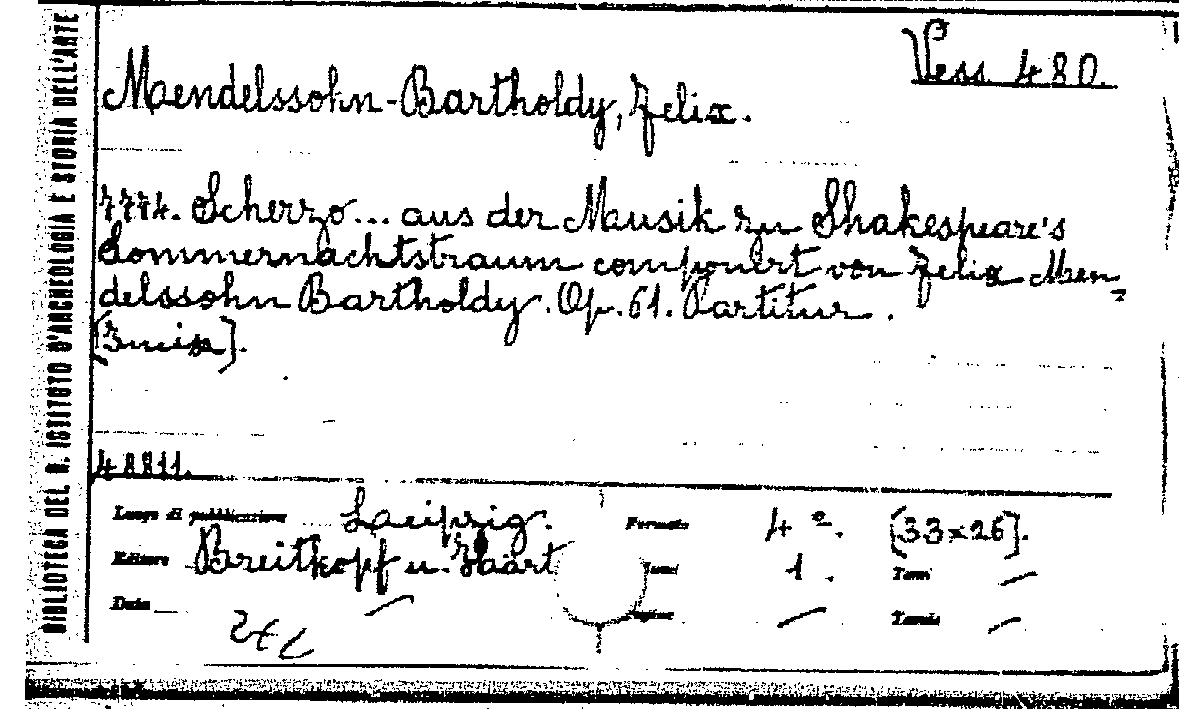 BIBLIOTECA DEL R. ISTITUTO D'ARCHEOLOGIA E STORIA DELL'ARTE
Vess. 480.
Mendelssohn-Bartholdy, Felix.
7774. Scherzo... aus der Musik zu Shakespeare's
Sommernachtstraum componirt von Felix Men-
delssohn Bartholdy. Op. 61. Partitur.
48811.
Luogo di pubblicazione Leipzig. Formato 4º. [33x26].
Editore Breitkopf u. Haärt Tomi 1. Tomi —
Data — Pagine — Tavole —